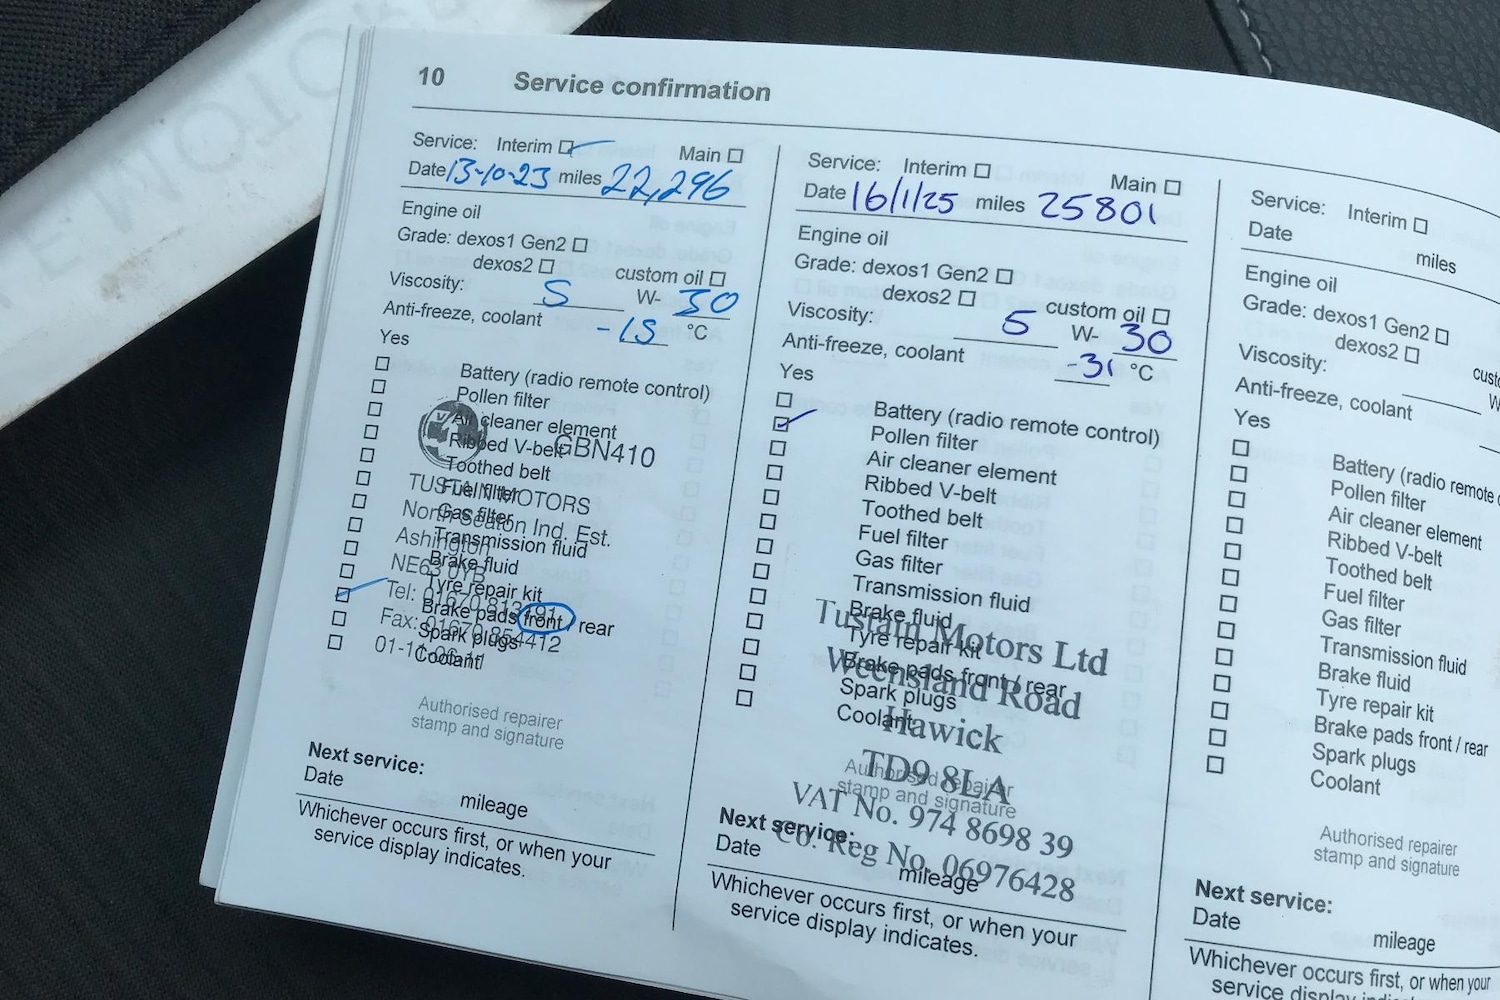 10 Service confirmation
Service: Interim Main
Date 13-10-23 miles 22,296
Engine oil
Grade: dexos1 Gen2
dexos2 custom oil
Viscosity: 5 W- 30
Anti-freeze, coolant -15 °C
Yes
Battery (radio remote control)
Pollen filter
Air cleaner element
Ribbed V-belt
Toothed belt
Fuel filter
Gas filter
Transmission fluid
Brake fluid
Tyre repair kit
Brake pads front / rear
Spark plugs
Coolant
GBN410
TUSTAIN MOTORS
North Seaton Ind. Est.
Ashington
NE63 0YB
Tel: 01670 813
Fax: 01670 854412
Authorised repairer
stamp and signature
Next service:
Date
mileage
Whichever occurs first, or when your
service display indicates.
Service: Interim Main
Date 16/1/25 miles 25801
Engine oil
Grade: dexos1 Gen2
dexos2 custom oil
Viscosity: 5 W- 30
Anti-freeze, coolant -31 °C
Yes
Battery (radio remote control)
Pollen filter
Air cleaner element
Ribbed V-belt
Toothed belt
Fuel filter
Gas filter
Transmission fluid
Brake fluid
Tyre repair kit
Brake pads front / rear
Spark plugs
Coolant
Tustain Motors Ltd
Weensland Road
Hawick
TD9 8LA
VAT No. 974 8698 39
Co. Reg No. 06976428
Authorised repairer
stamp and signature
Next service:
Date
mileage
Whichever occurs first, or when your
service display indicates.
Service: Interim
Date
miles
Engine oil
Grade: dexos1 Gen2
dexos2
Viscosity:
Anti-freeze, coolant
Yes
Battery (radio remote
Pollen filter
Air cleaner element
Ribbed V-belt
Toothed belt
Fuel filter
Gas filter
Transmission fluid
Brake fluid
Tyre repair kit
Brake pads front / rear
Spark plugs
Coolant
Authorised repairer
stamp and signature
Next service:
Date
mileage
Whichever occurs first, or when your
service display